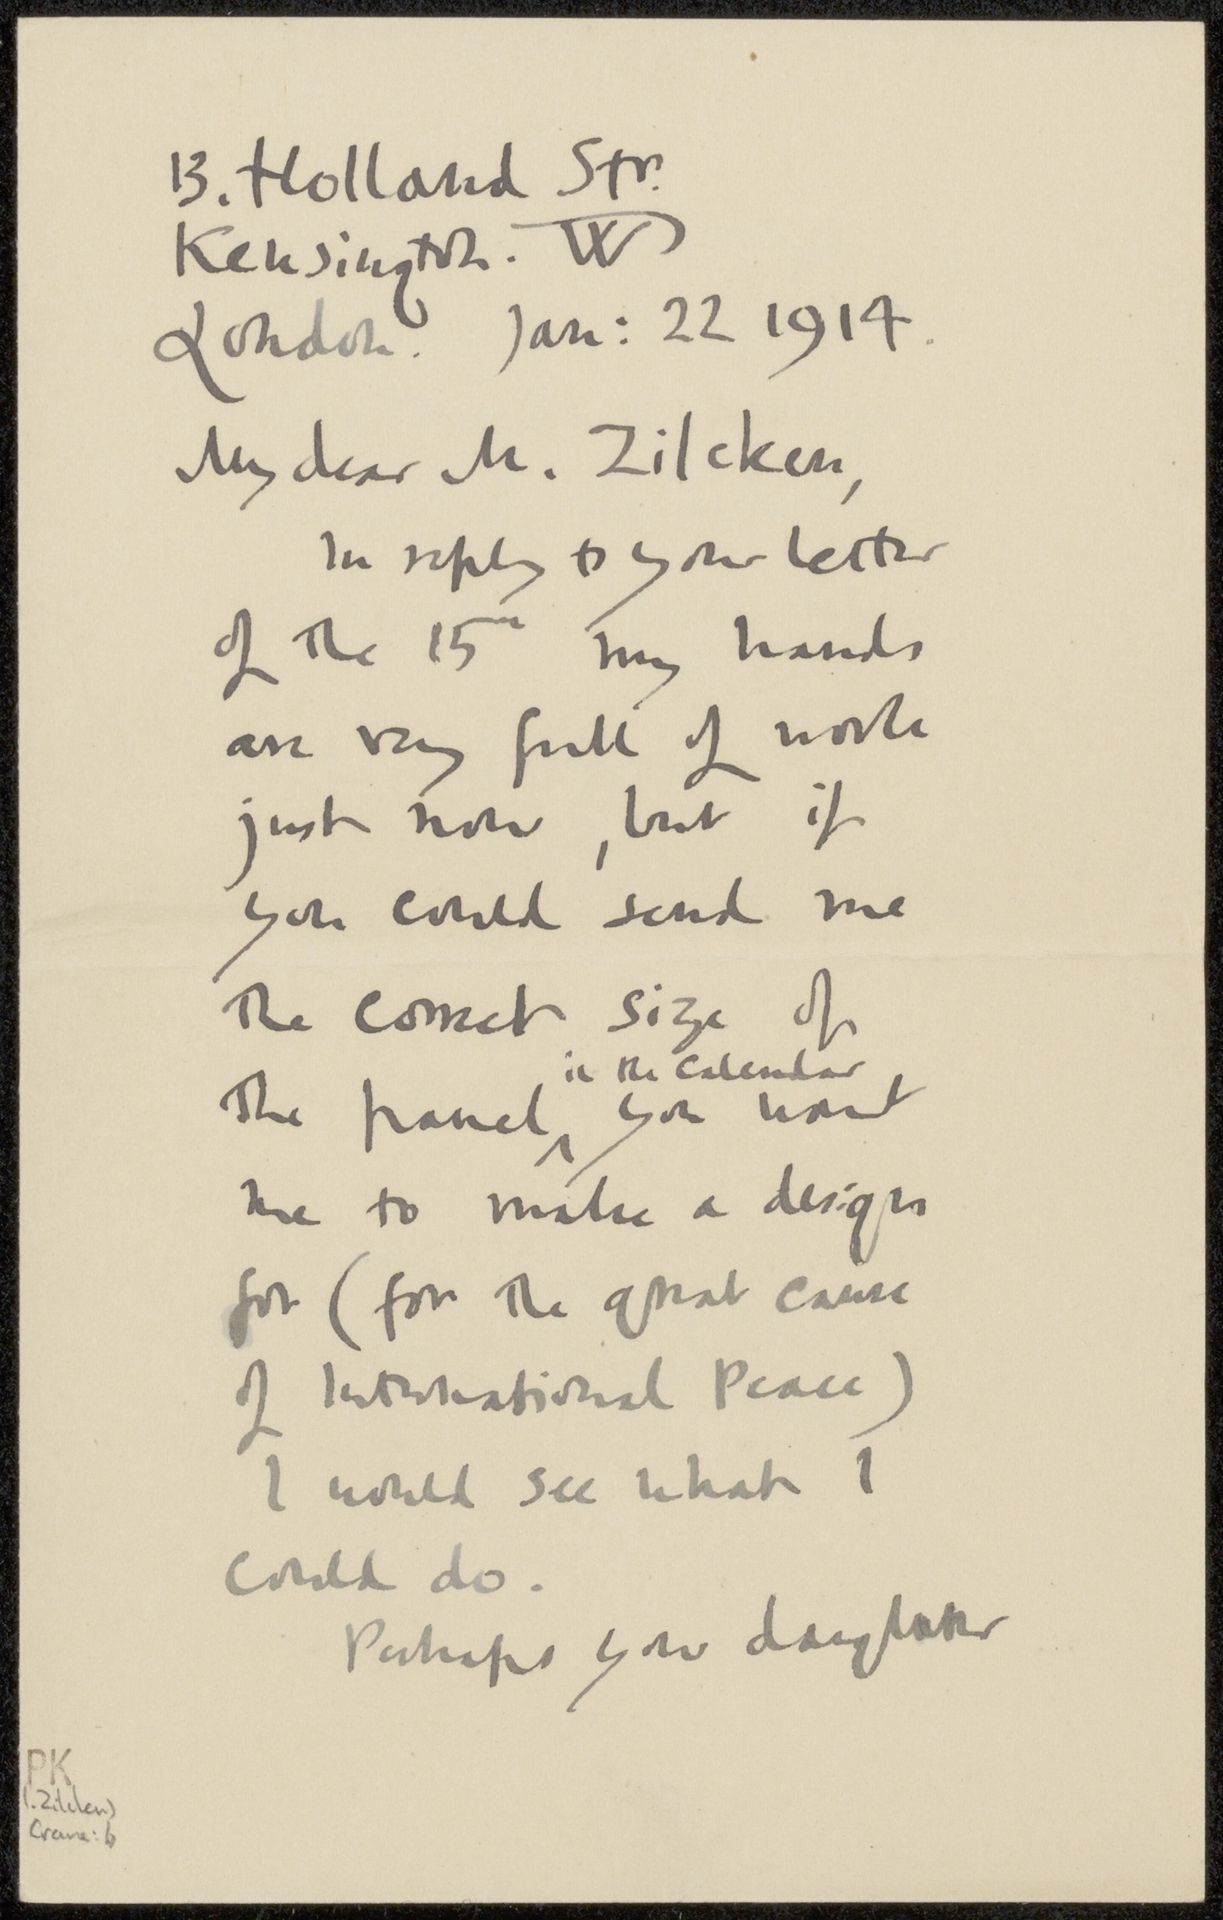 13. Holland Str.
Kensington. W
London. Jan: 22 1914.
My dear M. Zilcken,
In reply to your letter
of the 15th my hands
are very full of work
just now, but if
you could send me
the correct size of
in the Calendar
the panel, ^ you want
me to make a design
for (for the great cause
of International Peace)
I would see what I
could do.
Perhaps your daughter
PK
(.Zilcken)
Crane: b